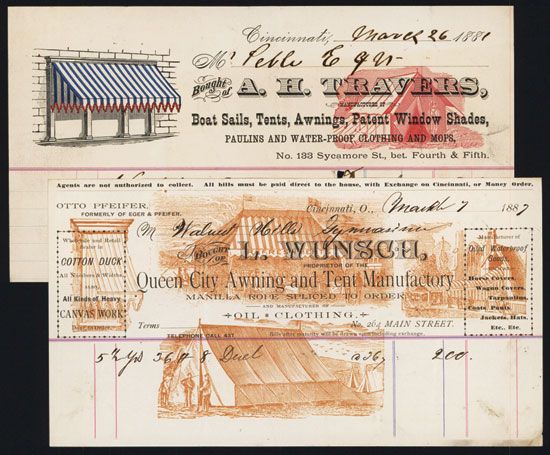 Cincinnati, March 26 1881
Mr
Bought of A. H. TRAVERS,
MANUFACTURER OF
Boat Sails, Tents, Awnings, Patent Window Shades,
PAULINS AND WATER-PROOF CLOTHING AND MOPS,
No. 133 Sycamore St., bet. Fourth & Fifth.
Agents are not authorized to collect. All bills must be paid direct to the house, with Exchange on Cincinnati, or Money Order.
OTTO PFEIFER,
FORMERLY OF EGER & PFEIFER.
Cincinnati, O., March 7 1887
M Walnut Hills Gymnasium
BOUGHT OF L. WUNSCH,
PROPRIETOR OF THE
Queen City Awning and Tent Manufactory
MANILLA ROPE SPLICED TO ORDER
AND MANUFACTURER OF
OIL CLOTHING.
Terms No. 264 MAIN STREET.
Wholesale and Retail
Dealer in
COTTON DUCK
All Numbers & Widths,
ALSO
All Kinds of Heavy
CANVAS WORK
Manufacturer of
Oiled Waterproof
Goods,
Horse Covers,
Wagon Covers,
Tarpaulins,
Coats, Pants,
Jackets, Hats,
Etc., Etc.
TELEPHONE CALL 457. Bills after maturity will be drawn upon including exchange.
5 1/2 yds 36 8 Duck a 36 2.00